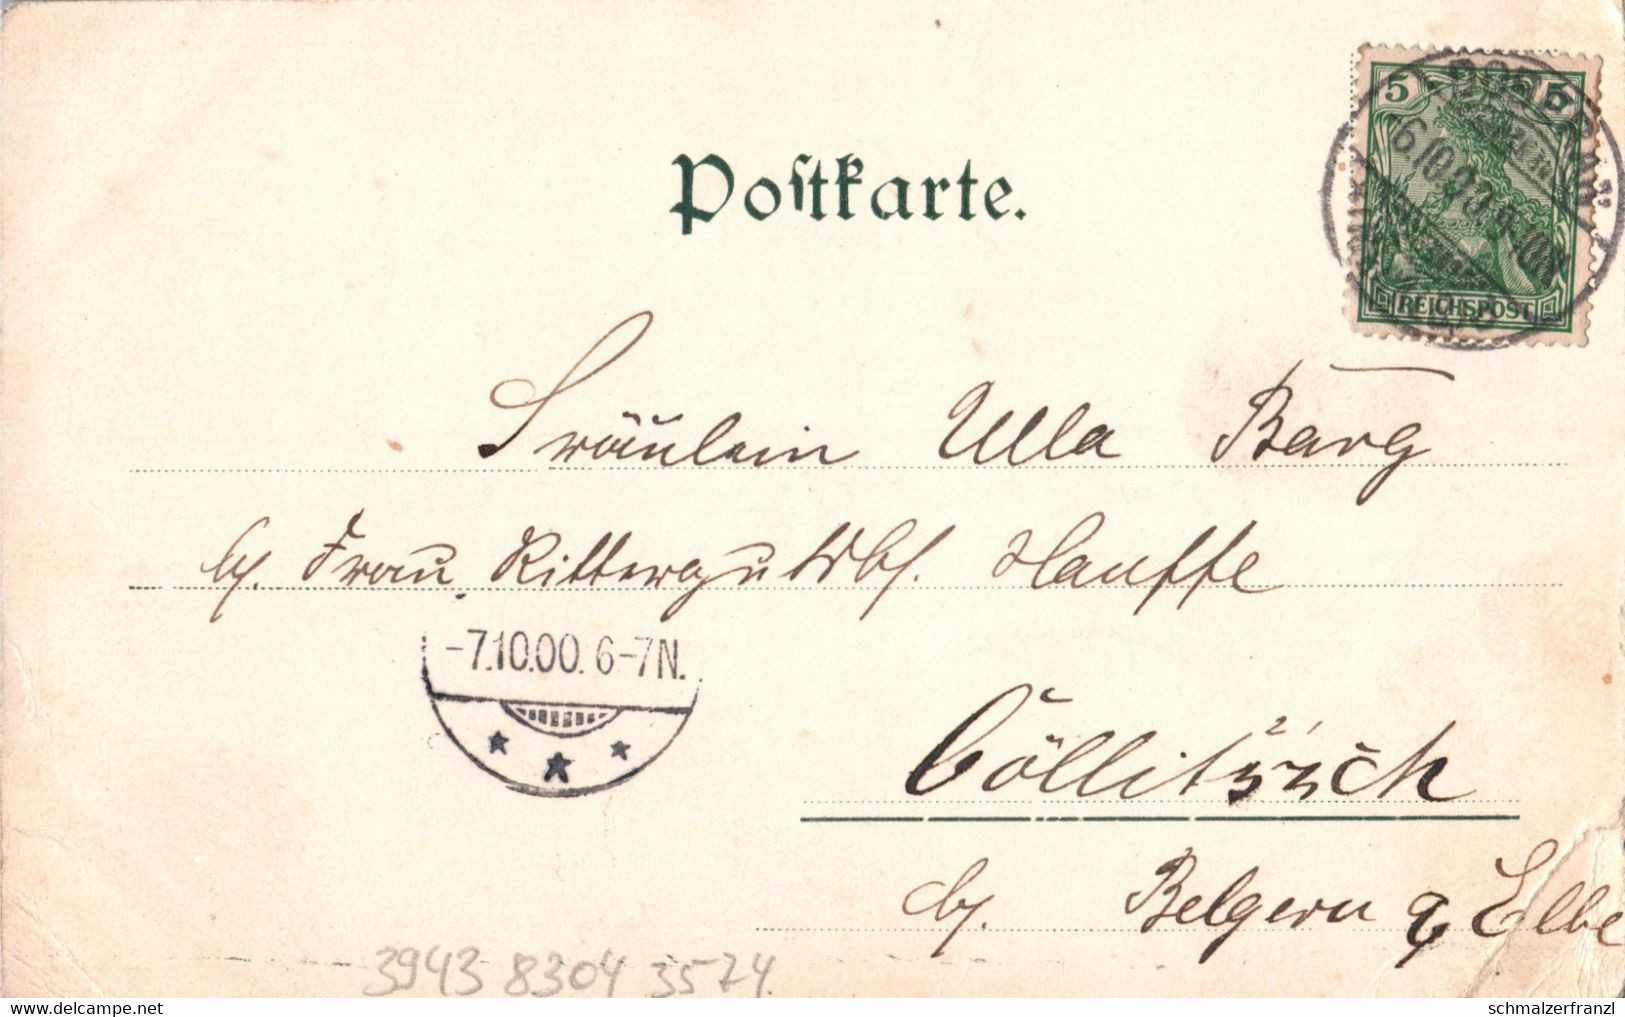 Postkarte.
5 5
REICHSPOST
6.10.00.9-10V
Fräulein Ulla Barg
b/. Frau Rittergutsbs. Hauffe
-7.10.00. 6-7N.
Cöllitzsch
b/. Belgern a/ Elbe
3943 8304 3574
www.delcampe.net
schmalzerfranzl